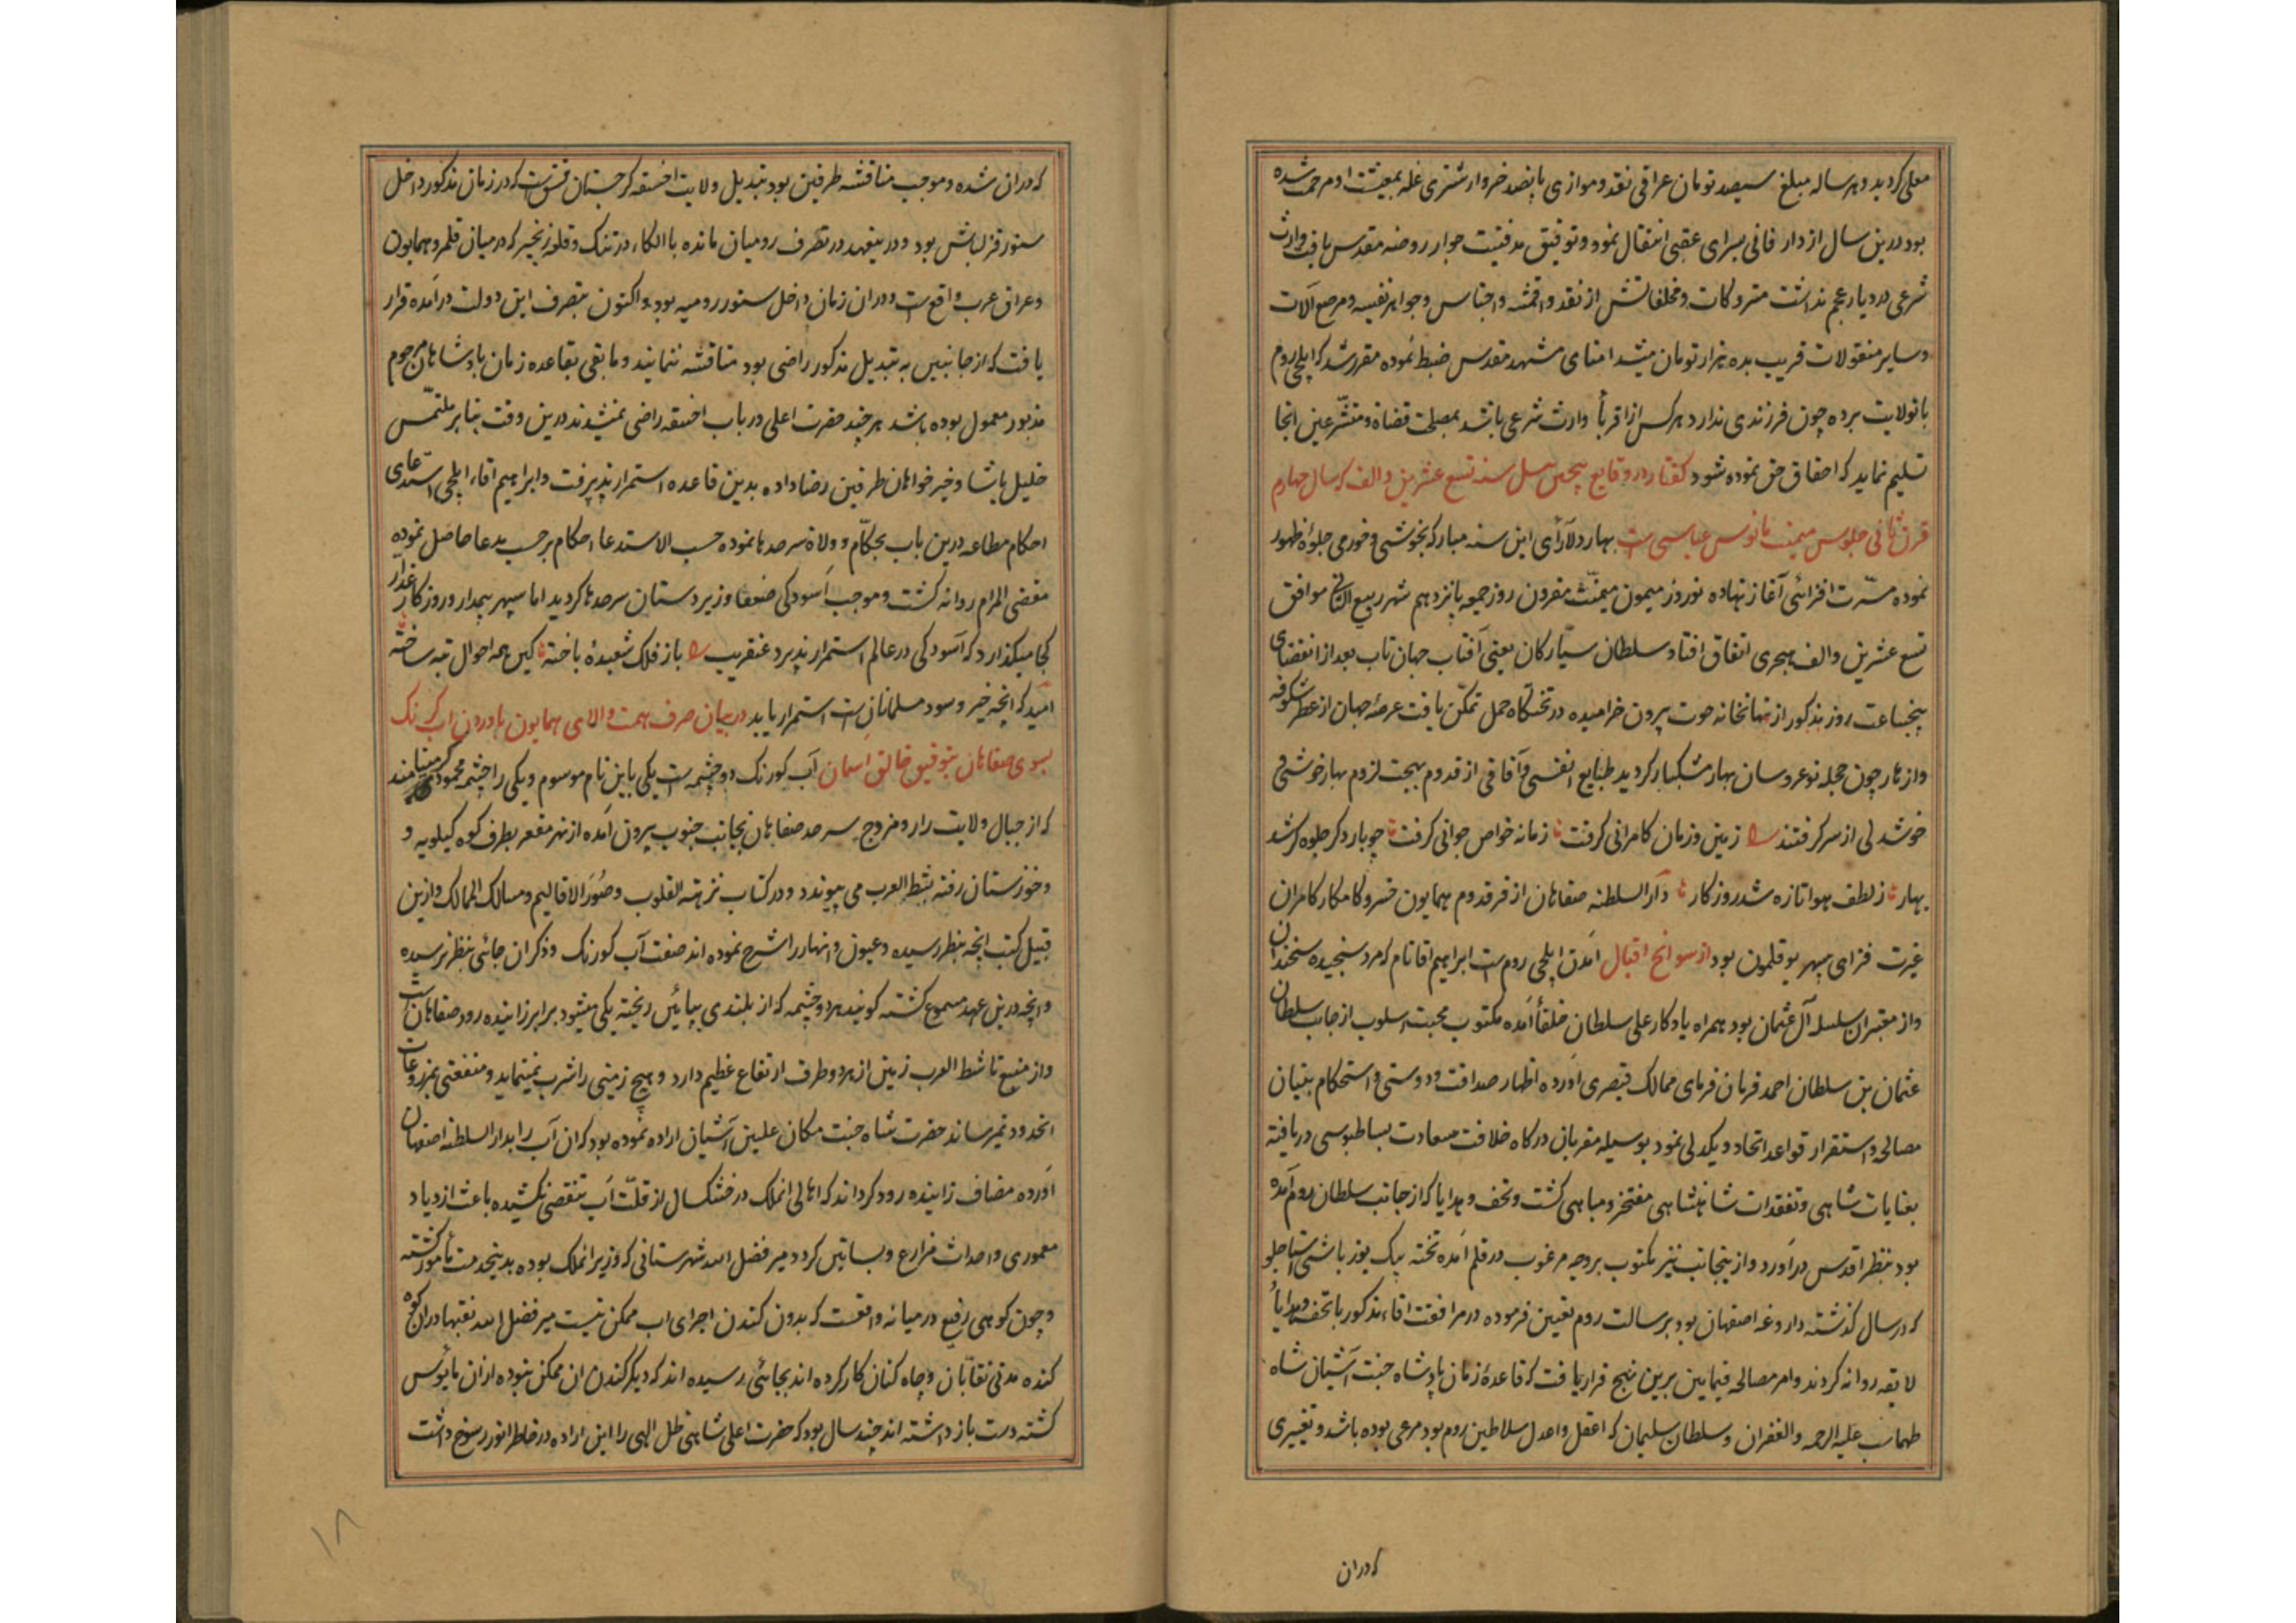 معلی کردید و هر ساله مبلغ سیصد تومان عراقی نقد و موازی پانصد خروار شتری غله بمعیشت او مرحمت شده
بود درین سال از دار فانی بسرای عقبی انتقال نمود و توفیق مدفنیت جوار روضه مقدس یافت وارث
شرعی در دیار عجم نداشت متروکات و مخلفاتش از نقد و اقمشه و اجناس و جواهر نفیسه و مرصع آلات
و سایر منقولات قریب بده هزار تومان میشد امنای مشهد مقدس ضبط نموده مقرر شد که ایلچی روم
بانولایت برده چون فرزندی ندارد هر کس از اقربا وارث شرعی باشد بمصلحت قضاة و متشرعین انجا
تسلیم نماید که احقاق حق نموده شود کفتار در وقایع پیچین ئیل سنه تسع عشرین و الف که سال چهارم
قرن ثانی جلوس میمنت مانوس عباسی است بهار دلارای این سنه مبارکه بخوشی و خورمی جلوهٔ ظهور
نموده مسّرت افزائی آغاز نهاده نوروز میمون میمنت مقرون روز جمعه پانزدهم شهر ربیع الثانی موافق
تسع عشرین و الف هجری اتفاق افتاد و سلطان سیّارکان یعنی آفتاب جهان تاب بعد از انقضای
پنجساعت روز مذکور از نهانخانه حوت بیرون خرامیده در تختکاه حمل تمکّن یافت عرصهٔ جهان از عطر شکوفه
و ازهار چون حجله نو عروسان بهار مشکبار کردید طبایع انفسی و آفاقی از قدوم بهجت لزوم بهار خوشی و
خوشدلی از سر کرفتند زمین و زمان کامرانی کرفت زمانه خواص جوانی کرفت چو بار دکر جلوه کر شد
بهار ز لطف هوا تازه شد روزکار دار السلطنه صفاهان از فر قدوم همایون خسرو کامکار کامران
غیرت فزای سپهر بوقلمون بود از سوانح اقبال امدن ایلچی روم است ابراهیم اقا نام که مرد سنجیده سخندان
و از معتبران سلسله آل عثمان بود همراه یادکار علی سلطان خلفأ آمده مکتوب محبت اسلوب از جانب سلطان
عثمان بن سلطان احمد فرمان فرمای ممالک قیصری آورده اظهار صداقت و دوستی و استحکام بنیان
مصالحه و استقرار قواعد اتحاد و یکدلی نمود بوسیله مقربان درکاه خلافت سعادت بساطبوسی دریافته
بعنایات شاهی و تفقدات شاهنشاهی مفتخر و مباهی کشت و تحف و هدایا که از جانب سلطان روم آمده
بود بنظر اقدس درآورد و از ینجانب نیز مکتوب بر وجه مرغوب در قلم آمده تخته بیک یوز باشی استاجلو
که در سال کذشته داروغه اصفهان بود برسالت روم تعیین فرموده در مرافقت اقاء مذکور با تحف و هدایا
لایقه روانه کردند و امر مصالحه فیمابین برین نهج قرار یافت که قاعدهٔ زمان پادشاه جنت آشیان شاه
طهماسب علیه الرحمه و الغفران و سلطان سلیمان که اعقل و اعدل سلاطین روم بود مرعی بوده باشد و تغییری
که دران
که دران شده و موجب مناقشه طرفین بود تبدیل ولایت اخسقه کرجستان است که در زمان مذکور داخل
سنور قزلباش بود و در ینعهد در تصرف رومیان مانده با الکاء درتنک و قلعه زنجیر که در میان قلمرو همایون
و عراق عرب واقع است و دران زمان داخل سنور رومیه بود و اکنون بتصرف این دولت درآمده قرار
یافت که از جانبین به تبدیل مذکور راضی بود مناقشه ننمایند و مابقی بقاعده زمان پادشاهان مرحوم
مذبور معمول بوده باشد هر چند حضرت اعلی در باب اخسقه راضی نمیشدند درین وقت بنابر ملتمّس
خلیل پاشا و خیر خواهان طرفین رضا داده بدین قاعده استمرار پذیرفت و ابراهیم اقاء ایلچی استدعای
احکام مطاعه درین باب بحکّام و ولاة سرحدها نموده حسب الاستدعا احکام برحسب مدعا حاصل نموده
مقضی المرام روانه کشت و موجب آسودکی ضعفا و زیردستان سرحدها کردید اما سپهر بیمدار و روزکار غدّار
کجا میکذارد که آسودکی در عالم استمرار پذیرد عنقریب باز فلک شعبدهٔ باخته کین همه احوال تبه ساخته
امید که انچه خیر و سود مسلمانان است استمرار یابد در بیان صرف همت والای همایون باوردن اب کرنک
بسوی صفاهان بتوفیق خالق اسمان آب کورنک دو چشمه است یکی باین نام موسوم و یکی را چشمه محمود کر مینامند
که از جبال ولایت رار و مزوج سرحد صفاهان بجانب جنوب بیرون آمده از نهر مقعر بطرف کوه کیلویه و
و خوزستان رفته بشط العرب می پیوندد و در کتاب نزهته القلوب و صُوَر الاقالیم و مسالک الممالک و ازین
قبیل کتب انچه بنظر رسیده و عیون و انهار را شرح نموده اند صفت آب کورنک و ذکر ان جائی بنظر نرسیده
و انچه درین عهد مسموع کشته کویند هر دو چشمه که از بلندی بپائین ریخته یکی میشود برابر زاینده رود صفاهان است
و از منبع تا شط العرب زمین از هر دو طرف ارتفاع عظیم دارد و هیچ زمینی را شرب نمینماید و منفعتی بمزروعات
انحدود نمیرساند حضرت شاه جنت مکان علیین آشیان اراده نموده بود که ان آب را بدار السلطنه اصفهان
آورده مضاف زاینده رود کرداند که اهالی انملک در خشکسال از قلّت آب تنقصی نکشیده باعث ازدیاد
معموری و احداث مزارع و بساتین کردد میر فضل الله شهرستانی که وزیر انملک بوده بدینخدمت مأمور کشته
و چون کوهی رفیع در میانه واقعست که بدون کندن اجرای اب ممکن نیست میر فضل الله نقبها دران کوه
کنده مدتی نقابان و چاه کنان کار کرده اند بجائی رسیده اند که دیکر کندن ان ممکن نبوده ازان مأیوس
کشته دست باز داشته اند چند سال بود که حضرت اعلی شاهی ظل الهی را این اراده در خاطر انور رسوخ داشت
۱۸